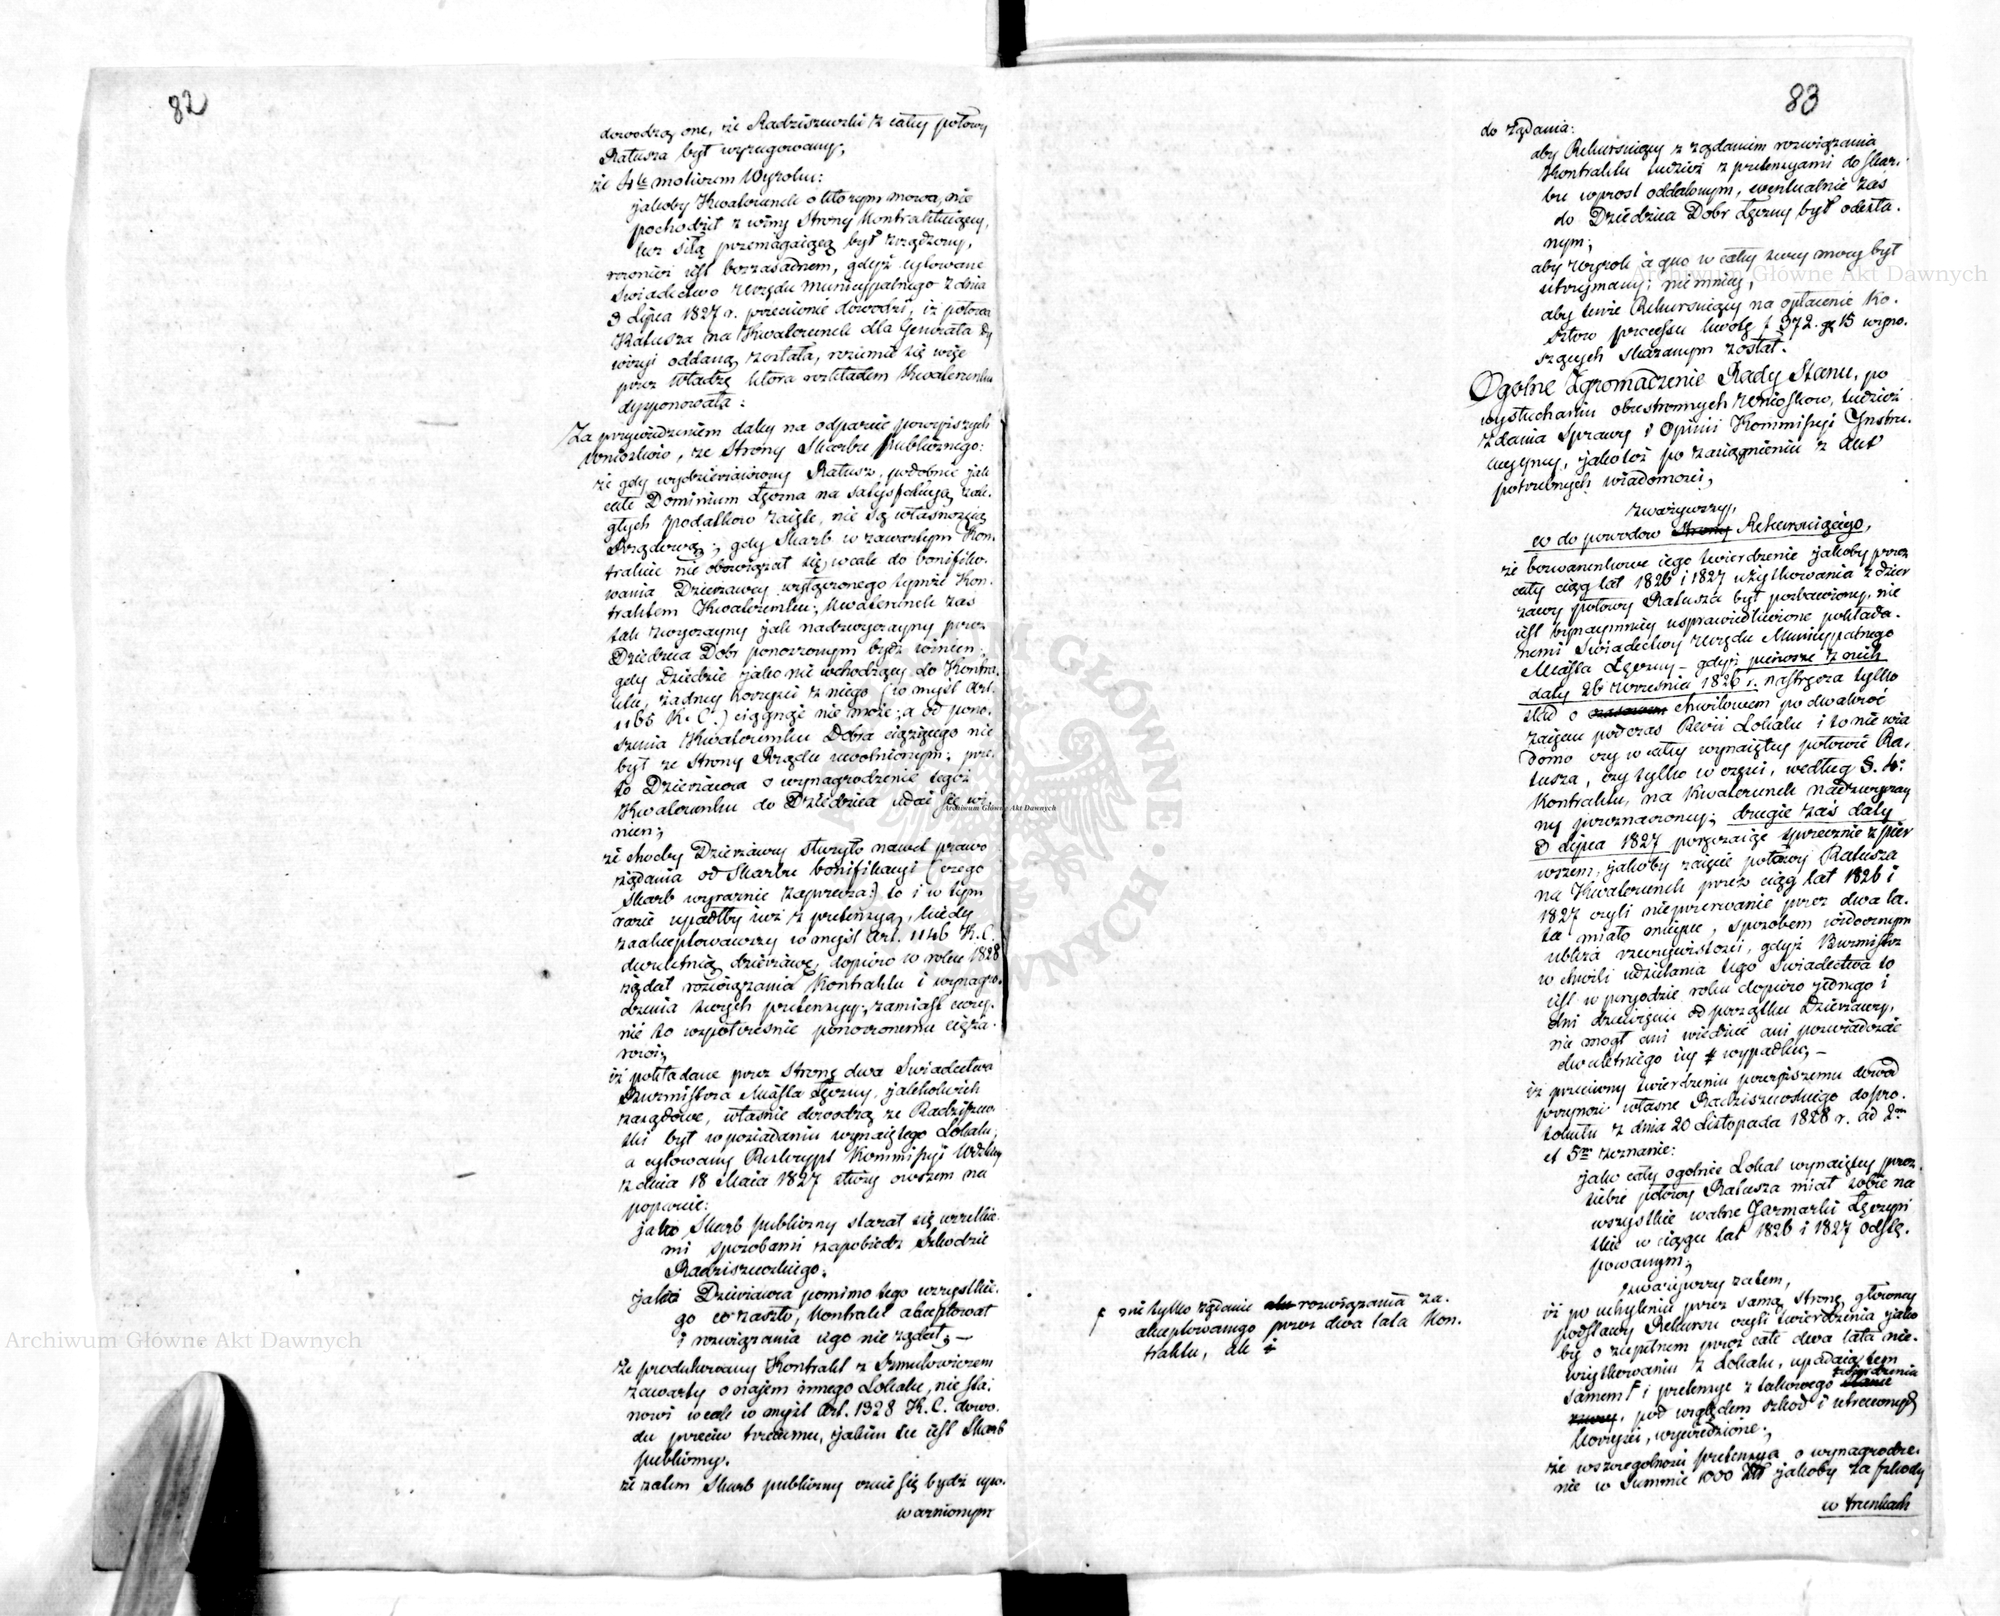 82
dowodzą one, że Radziszewski z całey połowy
Ratusza był wyrugowany;
że 4te motivem Wyroku:
jakoby Kwaterunek o którym mowa, nie
pochodził z winy Strony Kontraktuiącey,
lecz siłą przemagaiącą był zrządzony,
również iest bezzasadnem, gdyż cytowane
Świadectwo Urzędu Municypalnego z dnia
3 Lipca 1827 r. przeciwnie dowodzi, iż połowa
Ratusza na Kwaterunek dla Generała Dy
wizyi oddaną została, rozumie się więc
przez Władzę która rozkładem Kwaterunku
dysponowała:
Za przywiedzeniem daley na odparcie powyższych
wniosków, ze Strony Skarbu publicznego:
że gdy wydzierżawiony Ratusz, podobnie jak
całe Dominium Łęczna na satysfakcyą zale-
głych Podatków zaięte, nie są własnością
Rządową; gdy Skarb w zawartym Kon
trakcie nie obowiązał się wcale do bonifiko-
wania Dzierżawcy wyłączonego tymże Kon-
traktem Kwaterunku; Kwaterunek zaś
tak zwyczayny jak nadzwyczayny przez
Dziedzica Dóbr ponoszonym bydź winien;
gdy Dziedzic jako nie wchodzący do Kontra-
ktu, żadney korzyści z niego (w myśl Art.
1165 K. C.) ciągnąć nie może; a od pono-
szenia Kwaterunku Dobra ciążącego nie
był ze Strony Rządu uwolnionym; prze-
to Dzierżawca o wynagrodzenie tegoż
Kwaterunku do Dziedzica udać się wi-
nien;
że choćby Dzierżawcy służyło nawet prawo
żądania od Skarbu bonifikacyi (czego
Skarb wyraźnie zaprzecza) to i w tym
razie upadłby iuż z pretensyą, kiedy
zaakceptowawszy w myśl Art. 1146 K. C.
dwuletnią dzierżawę, dopiero w roku 1828
żądał rozwiązania Kontraktu i wynagro-
dzenia swych pretensyy; zamiast czoy-
nić to współcześnie ponoszonemu cięża-
rowi;
iż pokładane przez Stronę dwa Świadectwa
Burmistrza Miasta Łęczny, jakkolwiek
zaiądowe, właśnie dowodzą że Radziszew-
ski był w posiadaniu wynaiętego Lokalu;
a cytowany Reskrypt Kommissyi Wdzkiey
z dnia 18 Maia 1827 służy owszem na
poparcie:
jako Skarb publiczny starał się wszelkie-
mi sposobami zapobiedz szkodzie
Radziszewskiego;
jako Dzierżawca pomimo tego wszystkie-
go co zaszło, Kontrakt akceptował
i rozwiązania iego nie żądał; —
że produkowany Kontrakt z Szmulowiczem
zawarty o naiem innego Lokalu, nie sta-
nowi wcale w myśl Art. 1328 K. C. dowo-
du przeciw trzeciemu, jakim tu iest Skarb
publiczny.
że zatem Skarb publiczny czuie się bydź upo-
ważnionym
83
do żądania:
aby Rekursuiący z żądaniem rozwiązania
Kontraktu tudzież z pretensyami do Skar-
bu wprost oddalonym, ewentualnie zaś
do Dziedzica Dóbr Łęczny był odesła-
nym;
aby wyrok a quo w całey swey mocy był
utrzymany; niemniey,
aby tenże Rekursuiący na opłacenie ko-
sztów processu kwotę f 372. gr 15 wyno-
szących skazanym został.
Ogólne Zgromadzenie Rady Stanu, po
wysłuchaniu obustronnych wniosków, tudzież
zdania Sprawy i Opinii Kommissyi Instru-
kcyyney, jakoteż po zasiągnieniu z Akt
potrzebnych wiadomości,
zważywszy,
co do powodów Strony Rekursuiącego,
że bezwarunkowe iego twierdzenie jakoby przez
cały ciąg lat 1826 i 1827 użytkowania z dzier
żawy połowy Ratusza był pozbawiony, nie
iest bynaymniey usprawiedliwione pokłada-
nemi Świadectwy Urzędu Municypalnego
Miasta Łęczny — gdyż pierwsze z nich
daty 26 Września 1826 r. nastręcza tylko
ślad o chwilowem po dwakroć
zaięciu podczas Rewii Lokalu i to nie wia
domo czy w całey wynaiętey połowie Ra-
tusza, czy tylko w części, według §. 4o
Kontraktu, na Kwaterunek nadzwyczay
ny przeznaczoney; drugie zaś daty
3 Lipca 1827 poręczaiąc sprzecznie z pier
wszem, jakoby zaięcie połowy Ratusza
na Kwaterunek przez ciąg lat 1826 i
1827 czyli nieprzerwanie przez dwa la-
ta miało mieysce, sposobem widocznym
ubliża rzeczywistości, gdyż Burmistrz
w chwili udzielania tego Świadectwa to
iest w peryodzie roku dopiero jednego i
dni dziewięciu od początku Dzierżawy,
nie mógł ani wiedzieć ani poświadczać
dwuletniego iey wypadku; —
iż przeciwny twierdzeniu powyższemu dowód
przynosi własne Radziszewskiego do pro-
tokułu z dnia 20 Listopada 1828 r. ad 2m
et 5m zeznanie:
jako cały ogólnie Lokal wynaiętey przez
siebie połowy Ratusza miał sobie na
wszystkie walne Jarmarki Łęczyń
skie w ciągu lat 1826 i 1827 odstę-
powanym;
zważywszy zatem,
iż po uchyleniu przez samą stronę główney
podstawy Rekursu czyli twierdzenia jako
by o zupełnem przez całe dwa lata nie-
użytkowaniu z Lokalu, upadaią tem
samem F i pretensye z takowego twierdzenia
, pod względem szkód i utraconych
korzyści, wywiedzione;
że w szczególności pretensya o wynagrodze-
nie w Summie 1000 Złł jakoby za szkody
w trunkach
F nie tylko żądanie rozwiązania za-
akceptowanego przez dwa lata Kon-
traktu, ale i
Archiwum Główne Akt Dawnych
Archiwum Główne Akt Dawnych
Archiwum Główne Akt Dawnych